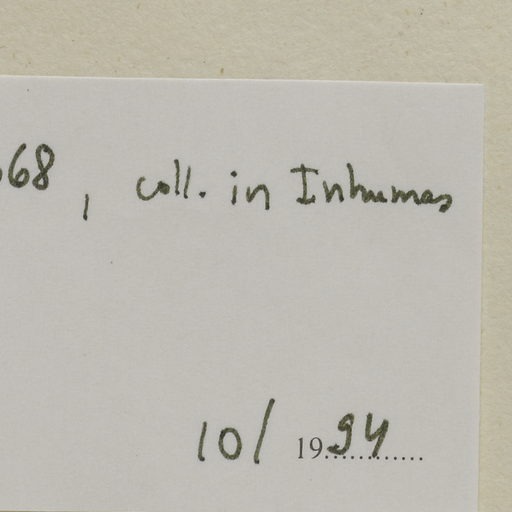 68, coll. in Inhumas
10/ 1994